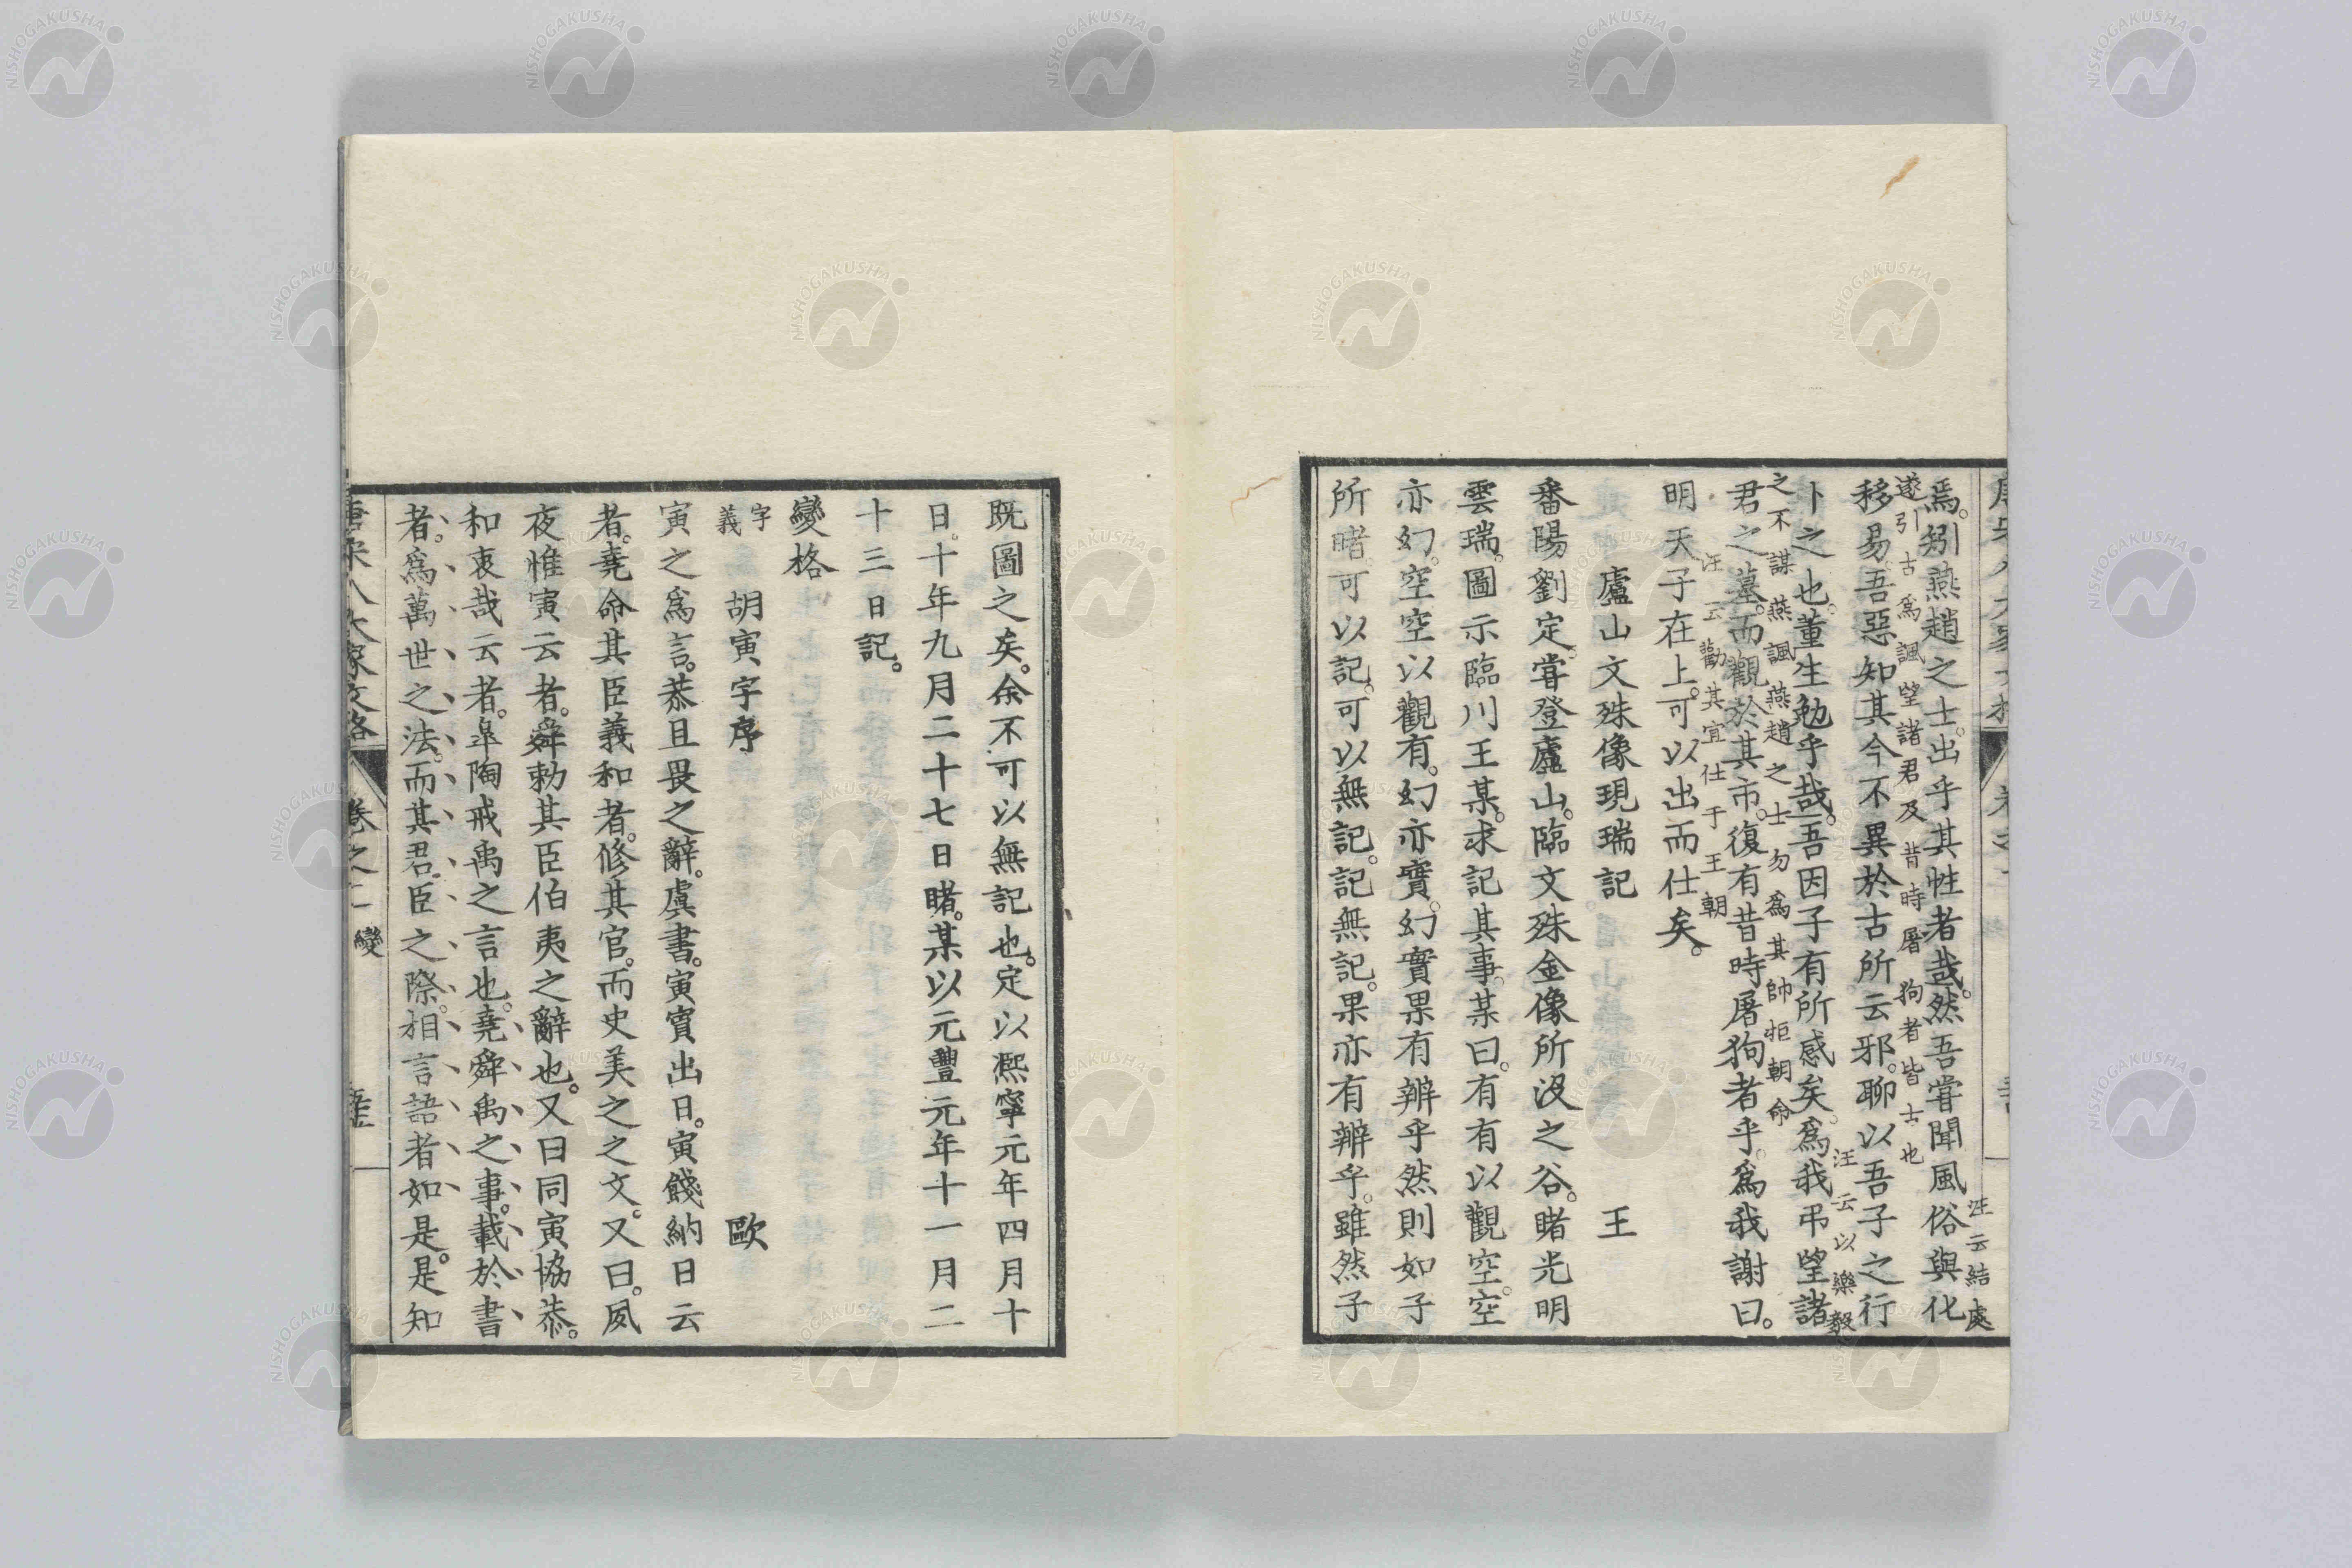 焉。矧燕趙之士。出乎其性者哉。然吾嘗聞風俗與化
汪云結處
遂引古爲諷望諸君及昔時屠狗者皆士也
移易。吾惡知其今不異於古所云邪。聊以吾子之行
汪云以樂毅
卜之也。董生勉乎哉。吾因子有所感矣。爲我弔望諸
之不謀燕諷燕趙之士勿爲其帥拒朝命
君之墓。而觀於其市。復有昔時屠狗者乎。爲我謝曰。
汪云勸其宜仕于王朝
明天子在上。可以出而仕矣。
廬山文殊像現瑞記 王
番陽劉定。嘗登廬山。臨文殊金像所沒之谷。睹光明
雲瑞。圖示臨川王某。求記其事。某曰。有有以觀空。空
亦幻。空空以觀有。幻亦實。幻實果有辨乎然則如子
所睹。可以記。可以無記。記無記。果亦有辨乎。雖然子
既圖之矣。余不可以無記也。定以熙寧元年四月十
日。十年九月二十七日睹。某以元豐元年十一月二
十三日記。
變格
字義 胡寅字序 歐
寅之爲言。恭且畏之辭。虞書。寅賓出日。寅餞納日云
者。堯命其臣義和者。修其官。而史美之之文。又曰。夙
夜惟寅云者。舜勅其臣伯夷之辭也。又曰同寅協恭。
和衷哉云者。臯陶戒禹之言也。堯舜禹之事。載於書
者。爲萬世之法。而其君臣之際。相言語者如是。是知
唐宋八大家文格 卷之二 變